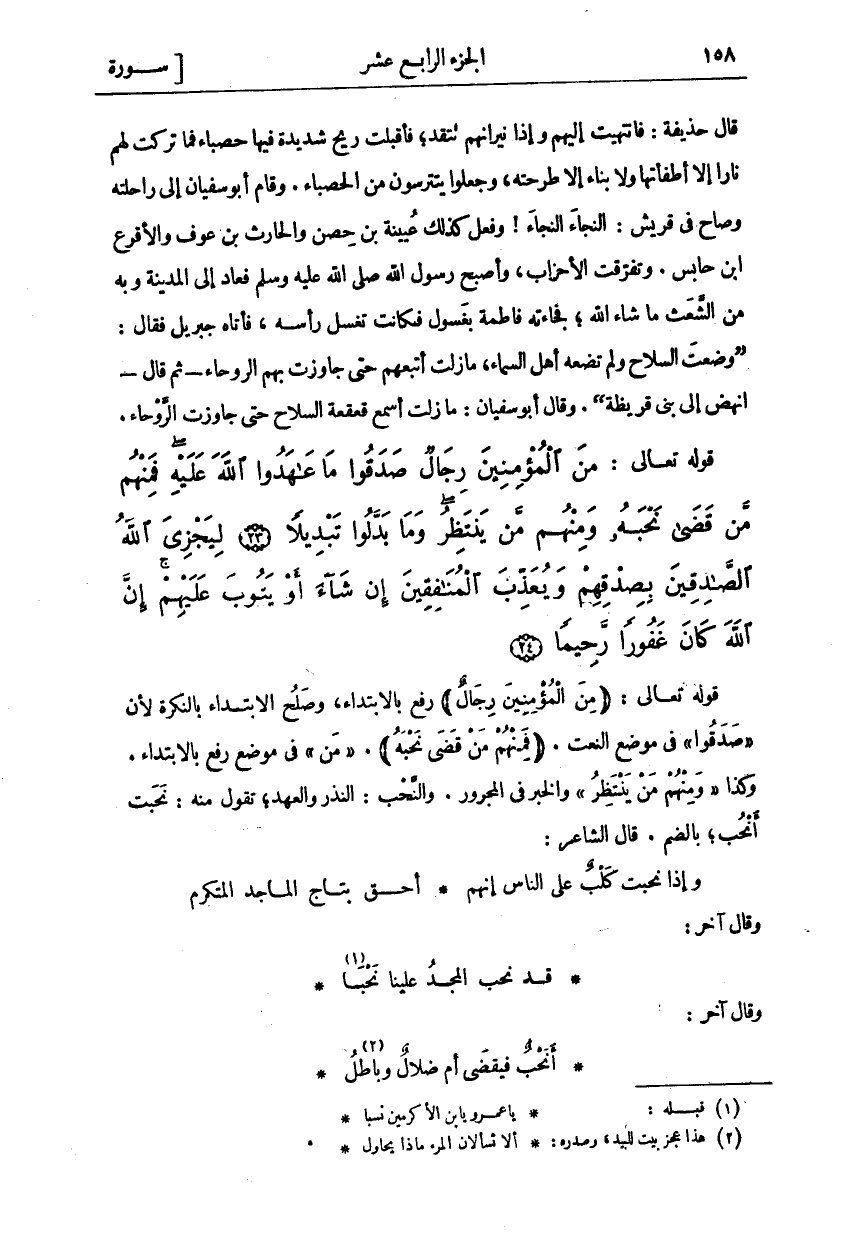 ١٥٨ الجزء الرابع عشر [ ســـورة
قال حذيفة : فانتهيت إليهم وإذا نيرانهم تَتقد؛ فأقبلت ريح شديدة فيها حصباء فما تركت لهم
نارا إلا أطفأتها ولا بناء إلا طرحته، وجعلوا يتترسون من الحصباء . وقام أبو سفيان إلى راحلته
وصاح فى قريش : النجاَء النجاَء ! وفعل كذلك عُيينة بن حِصن والحارث بن عوف والأقرع
ابن حابس . وتفرّقت الأحزاب، وأصبح رسول الله صلى الله عليه وسلم فعاد إلى المدينة وبه
من الشَّعَث ما شاء الله ؛ فجاءته فاطمة بغَسول فكانت تغسل رأسـه ، فأتاه جبريل فقال :
”وضعتَ السلاح ولم تضعه أهل السماء، ما زلت أتبعهم حتى جاوزت بهم الروحاء ــ ثم قال ــ
انهض إلى بنى قريظة“ . وقال أبو سفيان : ما زلت أسمع قعقعة السلاح حتى جاوزت الرَّوْحاء .
قوله تعـالى : مِنَ ٱلْمُؤْمِنِينَ رِجَالٌ صَدَقُوا مَا عَـٰهَدُوا ٱللَّهَ عَلَيْهِ ۖ فَمِنْهُم
مَّن قَضَىٰ نَحْبَهُۥ وَمِنْهُـم مَّن يَنتَظِرُ ۖ وَمَا بَدَّلُوا تَبْدِيلًا ﴿٢٣﴾ لِيَجْزِىَ ٱللَّهُ
ٱلصَّـٰدِقِينَ بِصِدْقِهِمْ وَيُعَذِّبَ ٱلْمُنَـٰفِقِينَ إِن شَآءَ أَوْ يَتُوبَ عَلَيْهِمْ ۚ إِنَّ
ٱللَّهَ كَانَ غَفُورًا رَّحِيمًا ﴿٢٤﴾
قوله تعـالى : ﴿ مِنَ الْمُؤْمِنِينَ رِجَالٌ ﴾ رفع بالابتداء، وصَلُح الابتـداء بالنكرة لأن
« صَدَقُوا » فى موضع النعت . ﴿ فَمِنْهُمْ مَنْ قَضَى نَحْبَهُ ﴾ . « مَن » فى موضع رفع بالابتداء .
وكذا « وَمِنْهُمْ مَنْ يَنْتَظِرُ » والخبر فى المجرور . والنَّحْب : النذر والعهد؛ تقول منه : نَحَبت
أَنْحُب؛ بالضم . قال الشاعر :
وإذا نحبت كَلْبٌ على الناس إنهم * أحـق بتـاج المـاجد المتكرم
وقال آخر :
* قـد نحب المجدُ علينا نَحْبَـا (١) *
وقال آخر :
* أَنَحْبٌ فيقضَى أم ضلالٌ وباطلُ (٢) *
(١) قبـله : * يا عمـرو يا بن الأكرمين نسبا *
(٢) هذا عجز بيت للبيد، وصدره : * ألا تسألان المرء ماذا يحاول * .